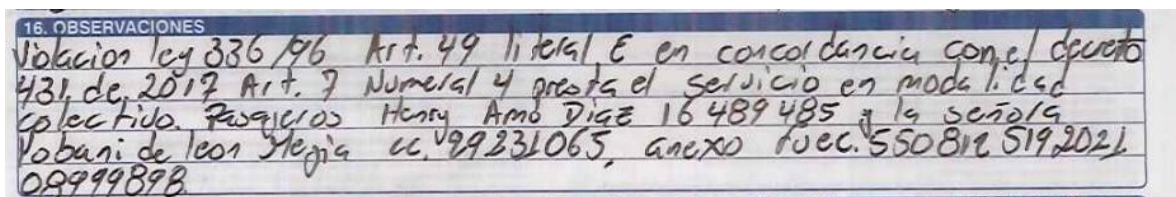 16. OBSERVACIONES
Violacion ley 336/96 Art. 49 literal E en concordancia con el decreto
431, de, 2017 Art. 7 Numeral 4 presta el servicio en modalidad
colectivo. Pasajeros Henry Amo Diaz 16489485 y la señora
Yobani de leon Megia cc. 29231065, anexo fuec. 550812 5192021
08999898.